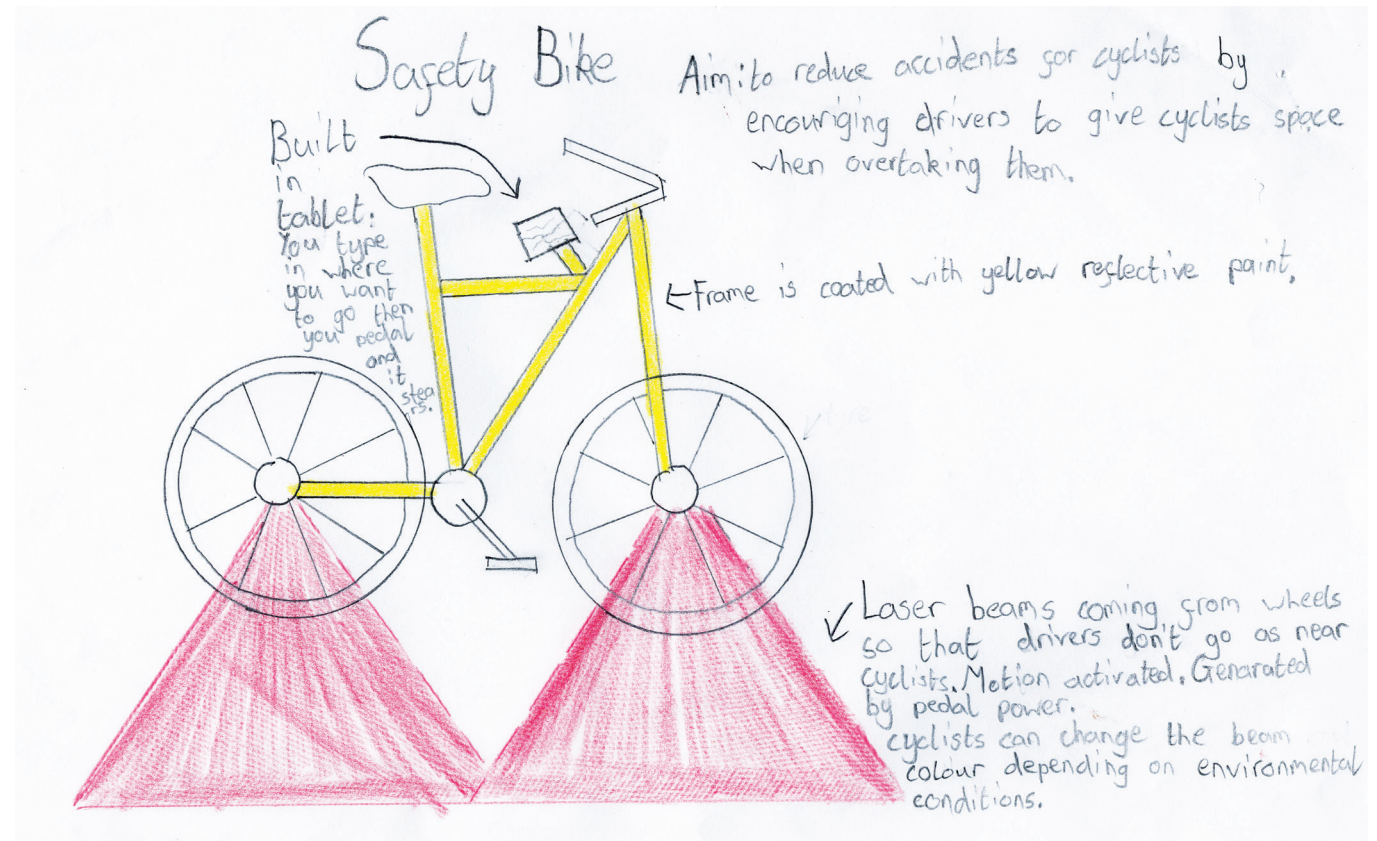 Safety Bike
Aim: to reduce accidents for cyclists by
encouriging drivers to give cyclists space
when overtaking them.
Built
in
tablet:
You type
in where
you want
to go then
you pedal
and
it
stea
rs.
←Frame is coated with yellow reflective paint.
Laser beams coming from wheels
so that drivers don't go as near
cyclists. Motion activated. Genarated
by pedal power.
cyclists can change the beam
colour depending on environmental
conditions.